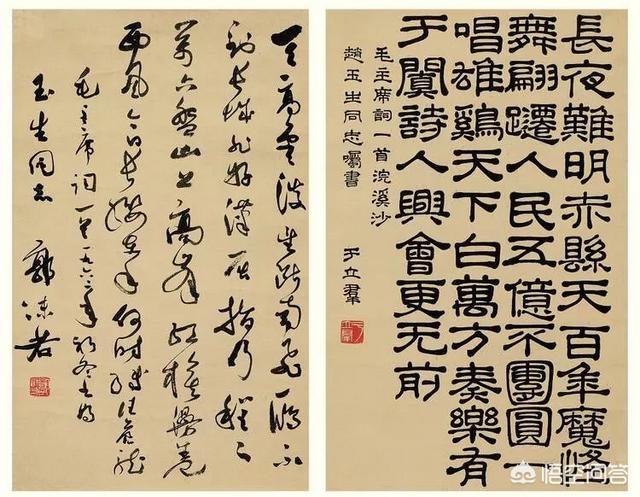 長夜難明赤縣天百年魔怪
舞翩躚人民五億不團圓一
唱雄雞天下白萬方奏樂有
于闐詩人興會更无前
毛主席詞一首浣溪沙
趙玉生同志囑書
于立羣
天高雲淡望斷南飛雁不
到長城非好漢屈指行程二
萬六盤山上高峰紅旗漫卷
西風今日長纓在手何時縛住蒼龍
毛主席詞一首一九六二年初冬書為
玉生同志
郭沫若
悟空问答